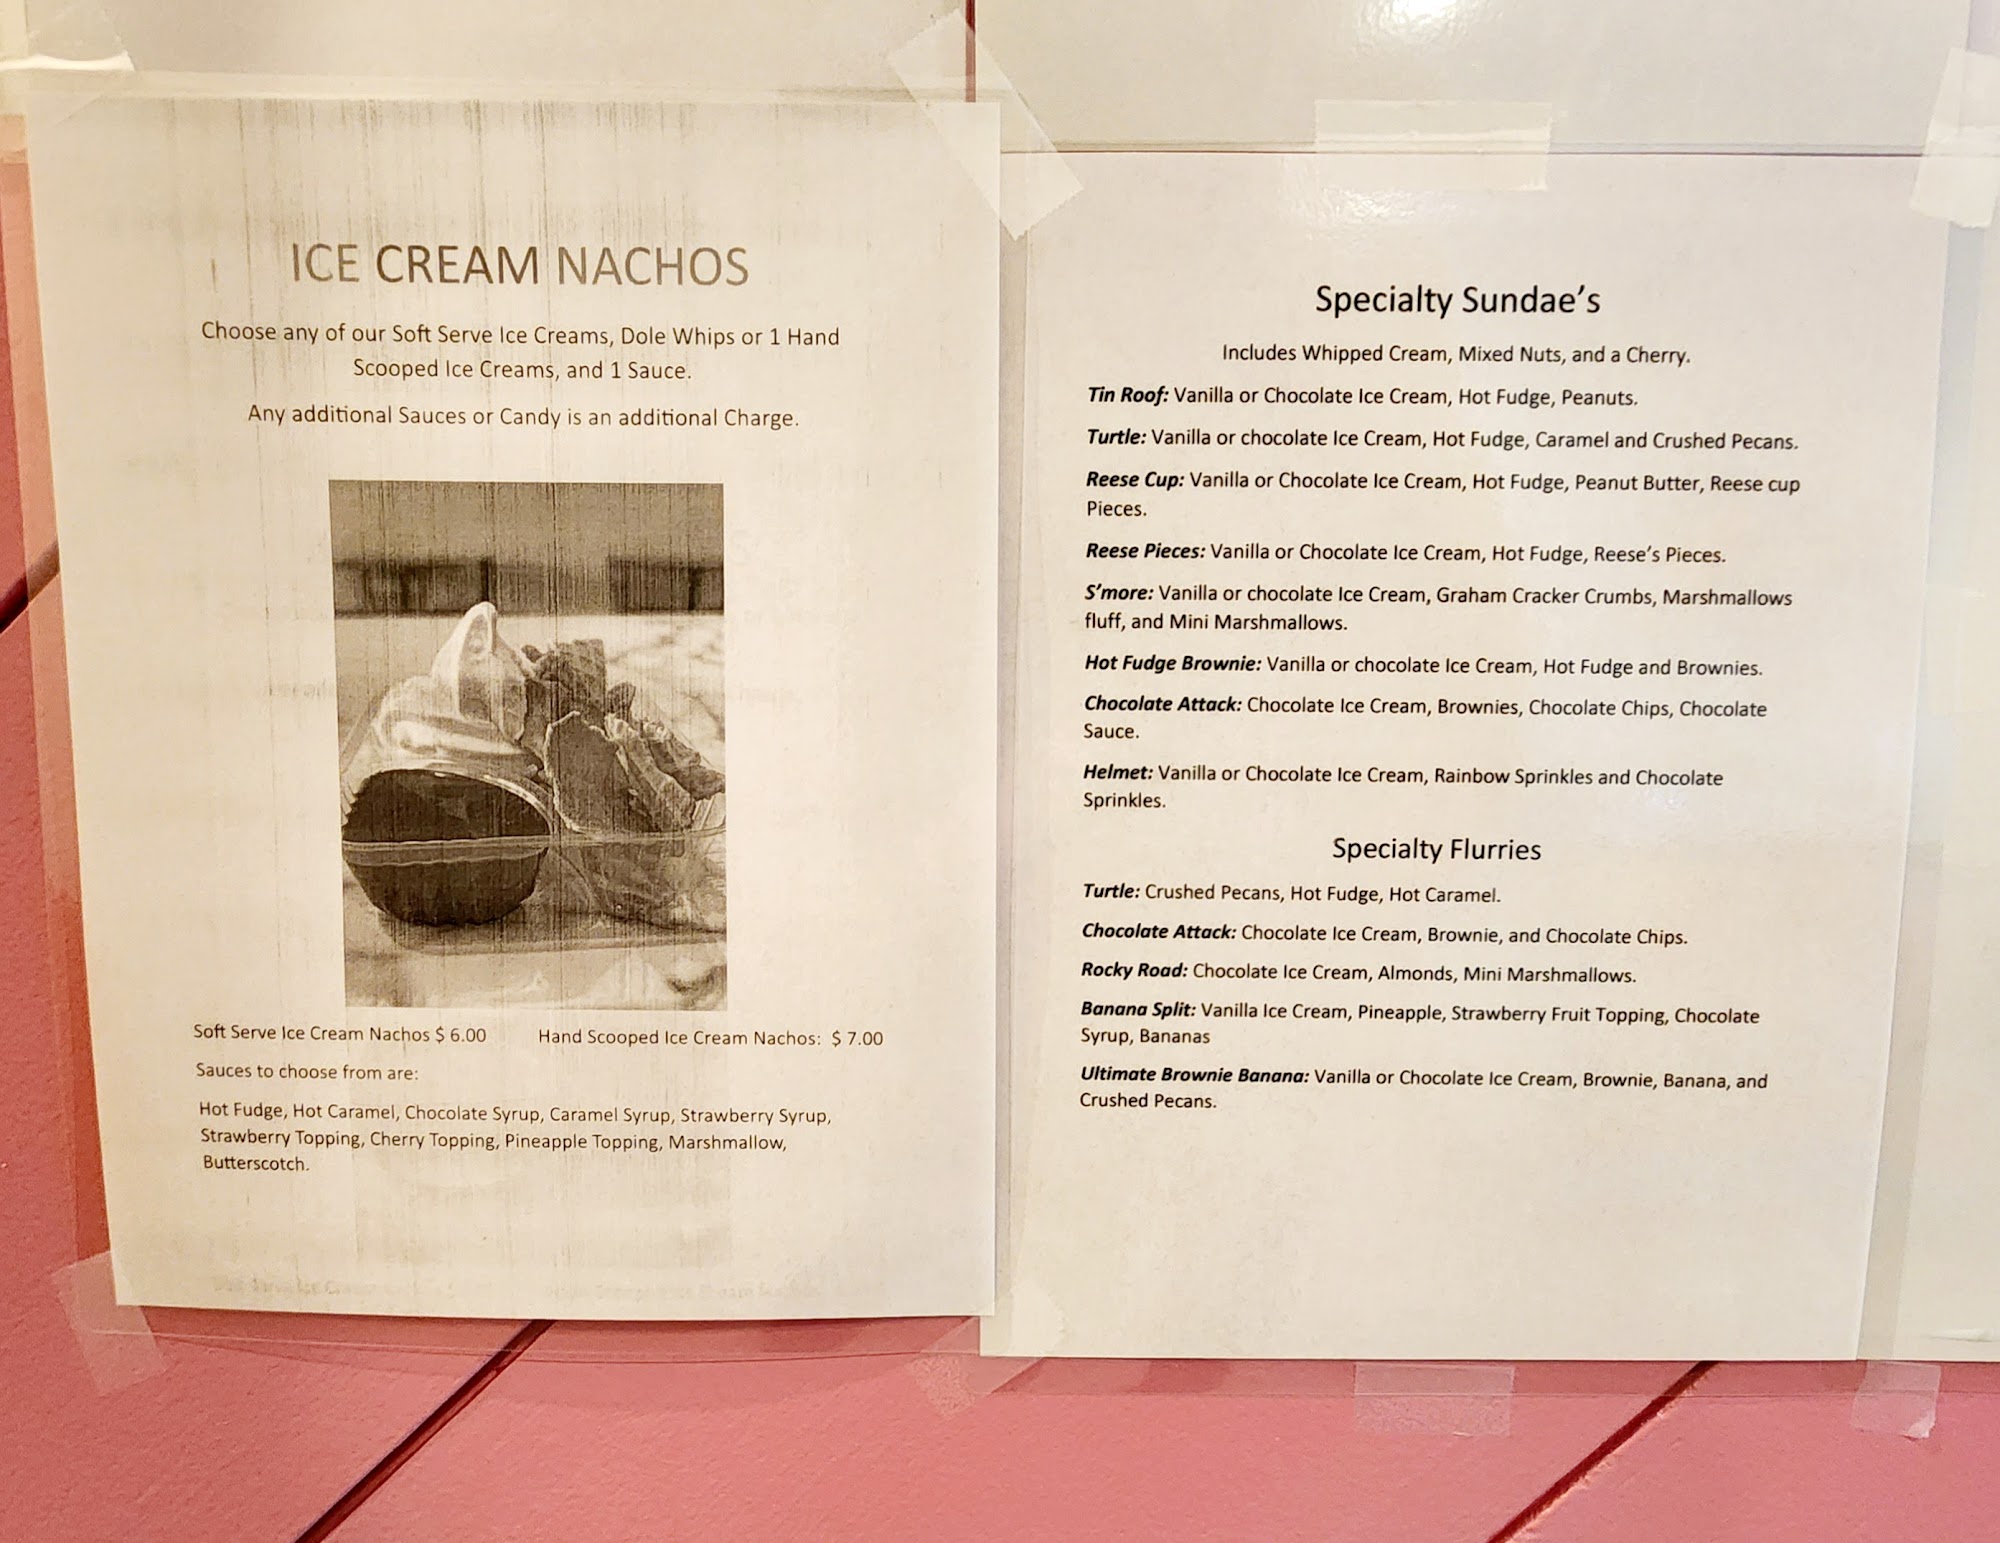 ICE CREAM NACHOS
Choose any of our Soft Serve Ice Creams, Dole Whips or 1 Hand
Scooped Ice Creams, and 1 Sauce.
Any additional Sauces or Candy is an additional Charge.
Soft Serve Ice Cream Nachos $ 6.00 Hand Scooped Ice Cream Nachos: $ 7.00
Sauces to choose from are:
Hot Fudge, Hot Caramel, Chocolate Syrup, Caramel Syrup, Strawberry Syrup,
Strawberry Topping, Cherry Topping, Pineapple Topping, Marshmallow,
Butterscotch.
Specialty Sundae's
Includes Whipped Cream, Mixed Nuts, and a Cherry.
Tin Roof: Vanilla or Chocolate Ice Cream, Hot Fudge, Peanuts.
Turtle: Vanilla or chocolate Ice Cream, Hot Fudge, Caramel and Crushed Pecans.
Reese Cup: Vanilla or Chocolate Ice Cream, Hot Fudge, Peanut Butter, Reese cup
Pieces.
Reese Pieces: Vanilla or Chocolate Ice Cream, Hot Fudge, Reese's Pieces.
S'more: Vanilla or chocolate Ice Cream, Graham Cracker Crumbs, Marshmallows
fluff, and Mini Marshmallows.
Hot Fudge Brownie: Vanilla or chocolate Ice Cream, Hot Fudge and Brownies.
Chocolate Attack: Chocolate Ice Cream, Brownies, Chocolate Chips, Chocolate
Sauce.
Helmet: Vanilla or Chocolate Ice Cream, Rainbow Sprinkles and Chocolate
Sprinkles.
Specialty Flurries
Turtle: Crushed Pecans, Hot Fudge, Hot Caramel.
Chocolate Attack: Chocolate Ice Cream, Brownie, and Chocolate Chips.
Rocky Road: Chocolate Ice Cream, Almonds, Mini Marshmallows.
Banana Split: Vanilla Ice Cream, Pineapple, Strawberry Fruit Topping, Chocolate
Syrup, Bananas
Ultimate Brownie Banana: Vanilla or Chocolate Ice Cream, Brownie, Banana, and
Crushed Pecans.